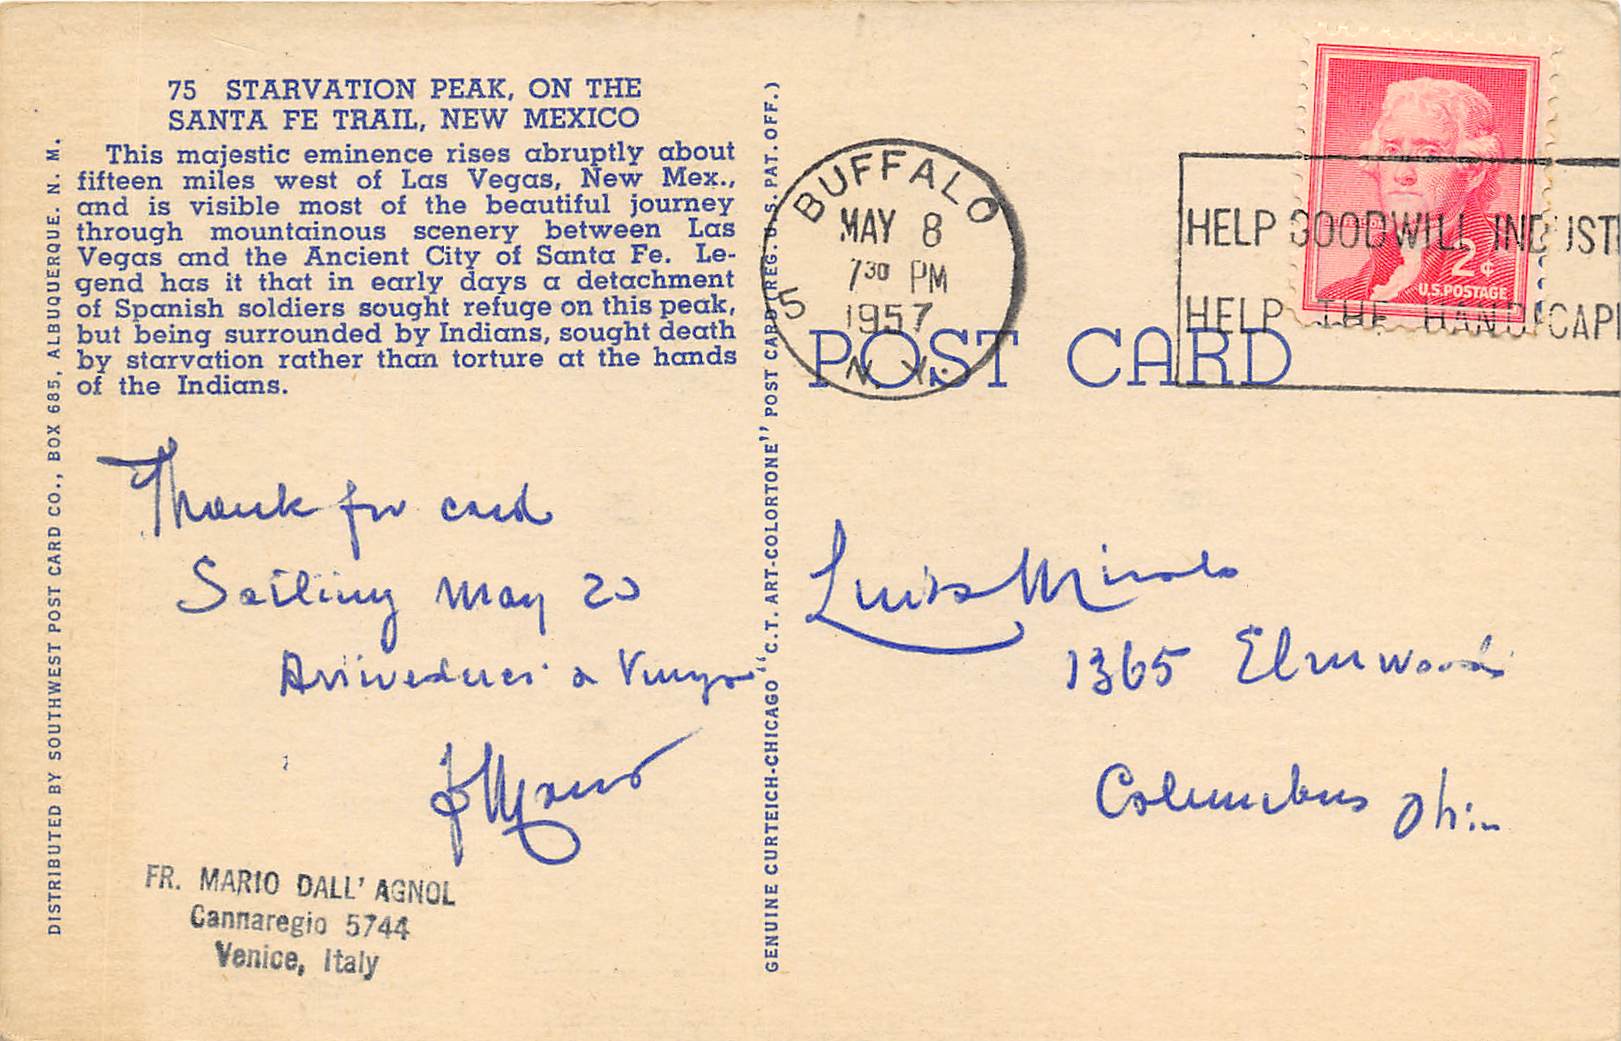 75 STARVATION PEAK, ON THE
SANTA FE TRAIL, NEW MEXICO
This majestic eminence rises abruptly about
fifteen miles west of Las Vegas, New Mex.,
and is visible most of the beautiful journey
through mountainous scenery between Las
Vegas and the Ancient City of Santa Fe. Le-
gend has it that in early days a detachment
of Spanish soldiers sought refuge on this peak,
but being surrounded by Indians, sought death
by starvation rather than torture at the hands
of the Indians.
DISTRIBUTED BY SOUTHWEST POST CARD CO., BOX 685, ALBUQUERQUE. N. M.
Thank for card
Sailing May 20
Arrivederci a
FR. MARIO DALL' AGNOL
Cannaregio 5744
Venice, Italy
GENUINE CURTEICH-CHICAGO "C.T. ART-COLORTONE" POST CARD (REG. U.S. PAT. OFF.)
BUFFALO
MAY 8
7 30 PM
1957
5
N.Y.
HELP GOODWILL INDUST
HELP THE HANDICAP
2¢
U.S. POSTAGE
POST CARD
Luis
1365 Elmwood
Columbus Ohio